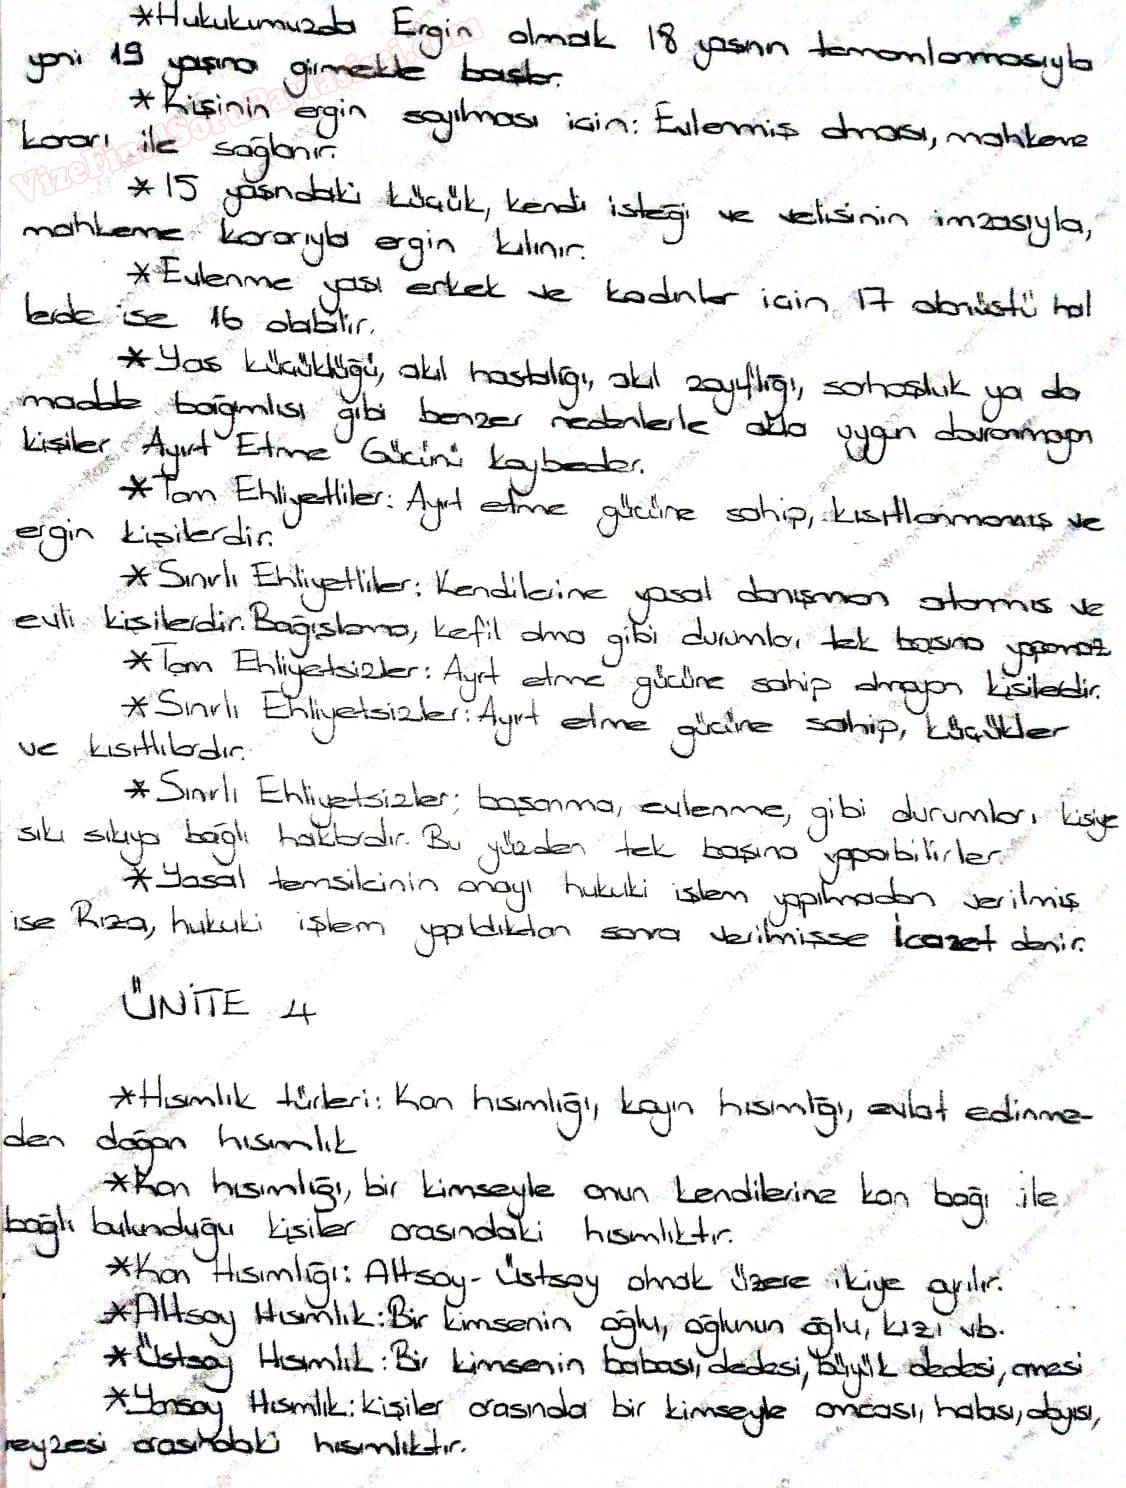 *Hukukumuzda Ergin olmak 18 yaşının tamamlanmasıyla
yani 19 yaşına girmekle başlar.
*Kişinin ergin sayılması için: Evlenmiş olması, mahkeme
kararı ile sağlanır.
*15 yaşındaki küçük, kendi isteği ve velisinin imzasıyla,
mahkeme kararıyla ergin kılınır.
*Evlenme yaşı erkek ve kadınlar için 17 olanüstü hal
lerde ise 16 olabilir.
*Yaş küçüklüğü, akıl hastalığı, akıl zayıflığı, sarhoşluk ya da
madde bağımlısı gibi benzer nedenlerle akla uygun davranmayan
kişiler Ayırt Etme Gücünü kaybeder.
*Tam Ehliyetliler: Ayırt etme gücüne sahip, kısıtlanmamış ve
ergin kişilerdir.
*Sınırlı Ehliyetliler: Kendilerine yasal danışman atanmış ve
evli kişilerdir. Bağışlama, kefil olma gibi durumları tek başına yapamaz
*Tam Ehliyetsizler: Ayırt etme gücüne sahip olmayan kişilerdir.
*Sınırlı Ehliyetsizler: Ayırt etme gücüne sahip, küçükler
ve kısıtlılardır.
*Sınırlı Ehliyetsizler; boşanma, evlenme, gibi durumları kişiye
sıkı sıkıya bağlı haklardır. Bu yüzden tek başına yapabilirler.
*Yasal temsilcinin onayı hukuki işlem yapılmadan verilmiş
ise Rıza, hukuki işlem yapıldıktan sonra verilmişse İcazet denir.
ÜNİTE 4
*Hısımlık türleri: Kan hısımlığı, kayın hısımlığı, evlat edinme-
den doğan hısımlık
*Kan hısımlığı, bir kimseyle onun kendilerine kan bağı ile
bağlı bulunduğu kişiler arasındaki hısımlıktır.
*Kan Hısımlığı: Altsoy-Üstsoy olmak üzere ikiye ayrılır.
*Altsoy Hısımlık: Bir kimsenin oğlu, oğlunun oğlu, kızı vb.
*Üstsoy Hısımlık: Bir kimsenin babası, dedesi, büyük dedesi, annesi
*Yansoy Hısımlık: kişiler arasında bir kimseyle amcası, halası, dayısı,
teyzesi arasındaki hısımlıktır.